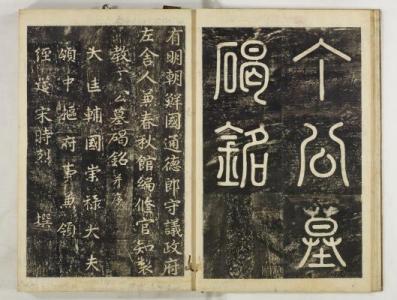 丁公墓
碣銘
有明朝鮮國通德郎守議政府
左舍人兼春秋館編修官知製
敎丁公墓碣銘 并序
大匡輔國崇祿大夫
領中樞府事兼領
經筵宋時烈 撰